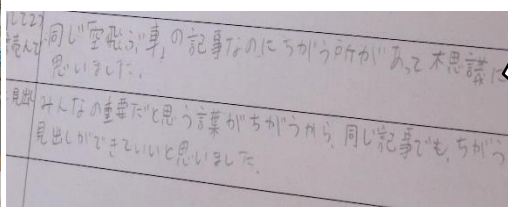 読んで
同じ「空飛ぶ車」の記事なのにちがう所があって不思議に
思いました。
見出し
みんなの重要だと思う言葉がちがうから、同じ記事でも、ちがう
見出しができていいと思いました。